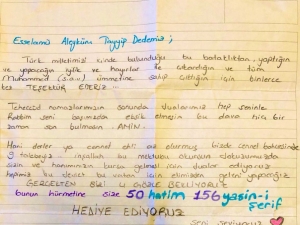 Esselamü Aleyküm Tayyip Dedemiz ;
Türk milletimizi içinde bulunduğu bu bataklıktan, yaptığın
ve yapacağın iyilik ve hayırlar ile çıkardığın ve tüm
Muhammed (s.a.v) ümmetine sahip çıktığın için binlerce
kez TEŞEKKÜR EDERİZ ...
Teheccüd namazlarımızın sonunda dualarımız hep seninle
Rabbim seni başımızdan eksik etmesin bu dava hiç bir
zaman son bulmasın AMİN.
Hani derler ya cennet ehli olmuşuz bizde cennet bahçesinde
3 talebeyiz inşallah bu mektubu okuman
sizin ve hanımınızın bursa gelmesi için dualar ediyoruz
hepimiz bu devlet bu vatan için elimizden geleni yapacağız
GERÇEKTEN BİZİ GÖZLE BEKLİYORUZ
bunun hürmetine size 50 hatim 156 yasin-i şerif
HEDİYE EDİYORUZ
Seni seviyoruz